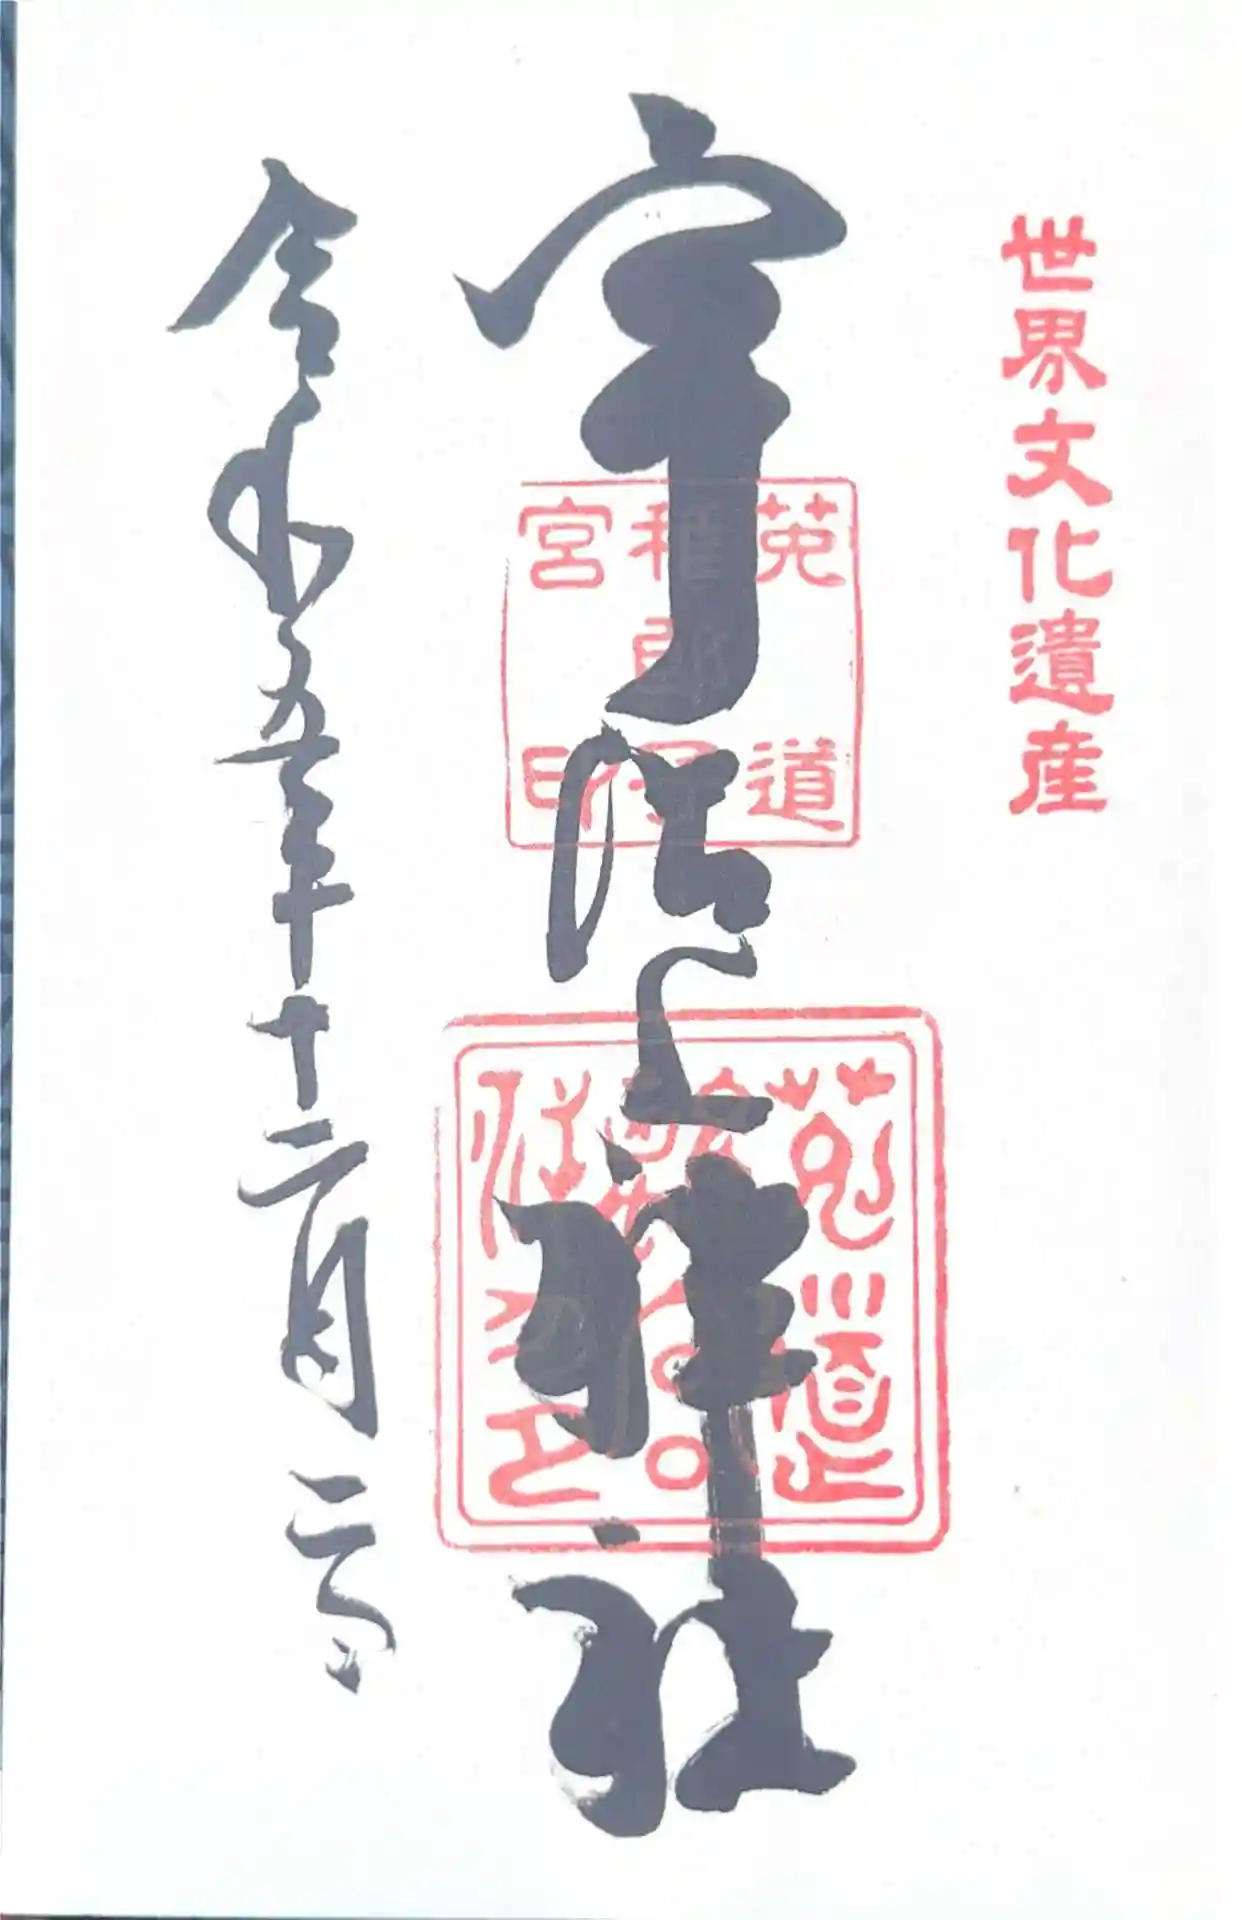 世界文化遺産
宇治上神社
菟道
稚郎子
宮印
令和五年十二月二日